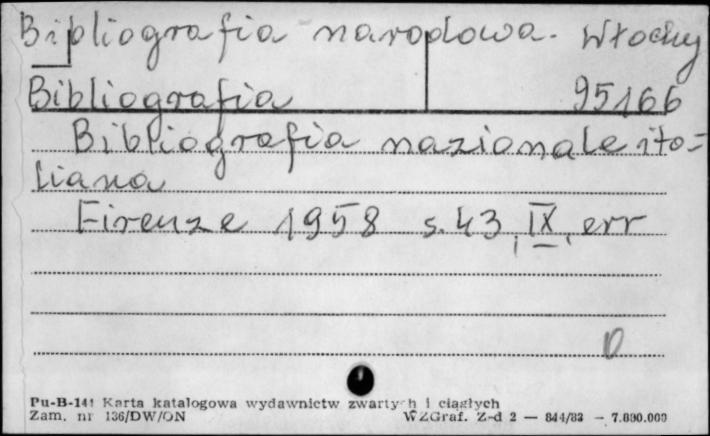 Bibliografia narodowa. Włochy
Bibliografia 95166
Bibliografia nazionale ita=
liana
Firenze 1958 s. 43, IX, err
D
Pu-B-141 Karta katalogowa wydawnictw zwartych i ciągłych
Zam. nr 136/DW/ON WZGraf. Z-d 2 — 844/83 — 7.800.000